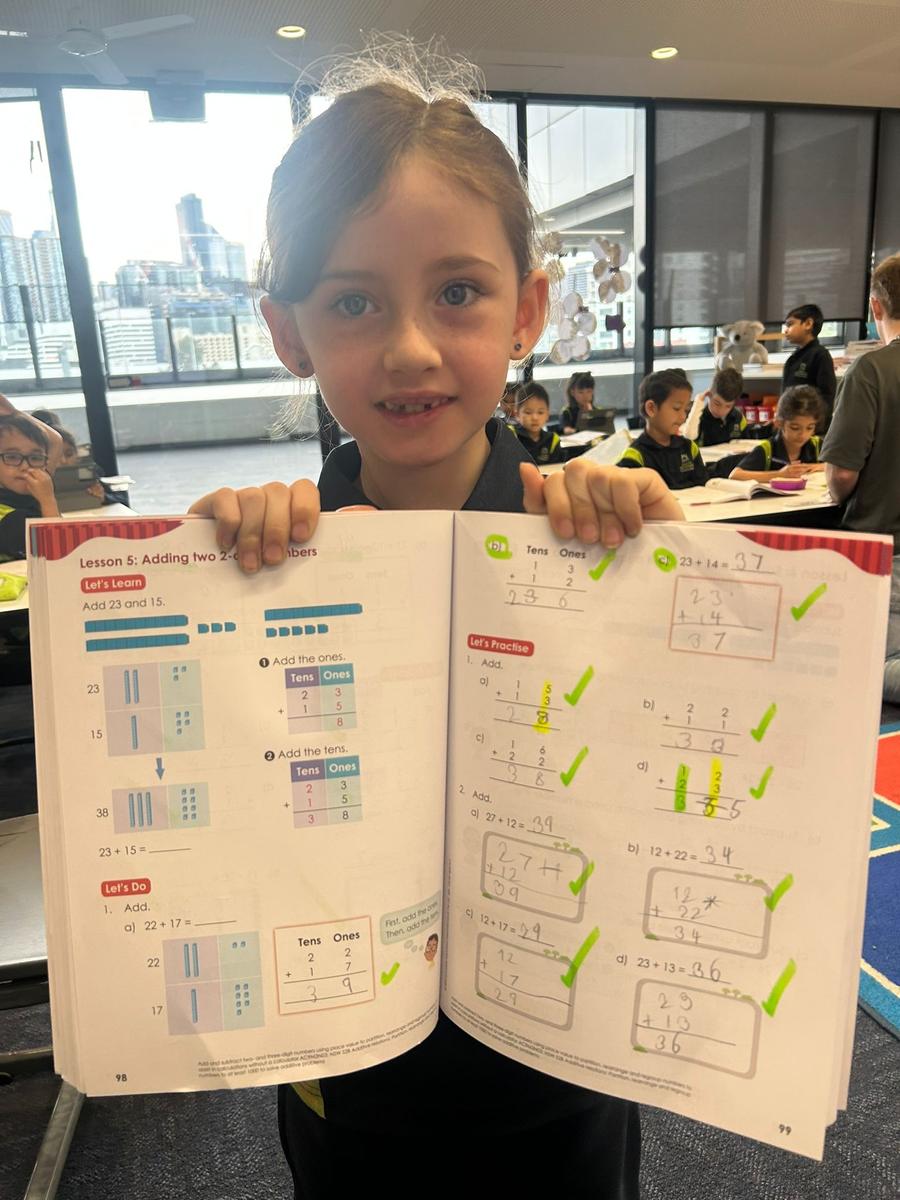 Lesson 5: Adding two 2- numbers
Let's Learn
Add 23 and 15.
23
15
38
1 Add the ones.
Tens Ones
2 3
+ 1 5
8
2 Add the tens.
Tens Ones
2 3
+ 1 5
3 8
23 + 15 = ____
Let's Do
1. Add.
a) 22 + 17 = ____
22
17
Tens Ones
2 2
+ 1 7
3 9
First, add the ones.
Then, add the tens.
Add and subtract two- and three-digit numbers using place value to partition, rearrange and regroup
98
b) Tens Ones
1 3
+ 1 2
2 6
c) 23 + 14 = 37
23
+ 14
37
Let's Practise
1. Add.
a) 1 5
+ 1 3
2 8
b) 2 2
+ 1 1
3 3
c) 1 6
+ 2 2
3 8
d) 1 2
+ 2 3
3 5
2. Add.
a) 27 + 12 = 39
27
+12
39
b) 12 + 22 = 34
12
+ 22
34
c) 12 + 17 = 29
12
+ 17
29
d) 23 + 13 = 36
23
+ 13
36
99